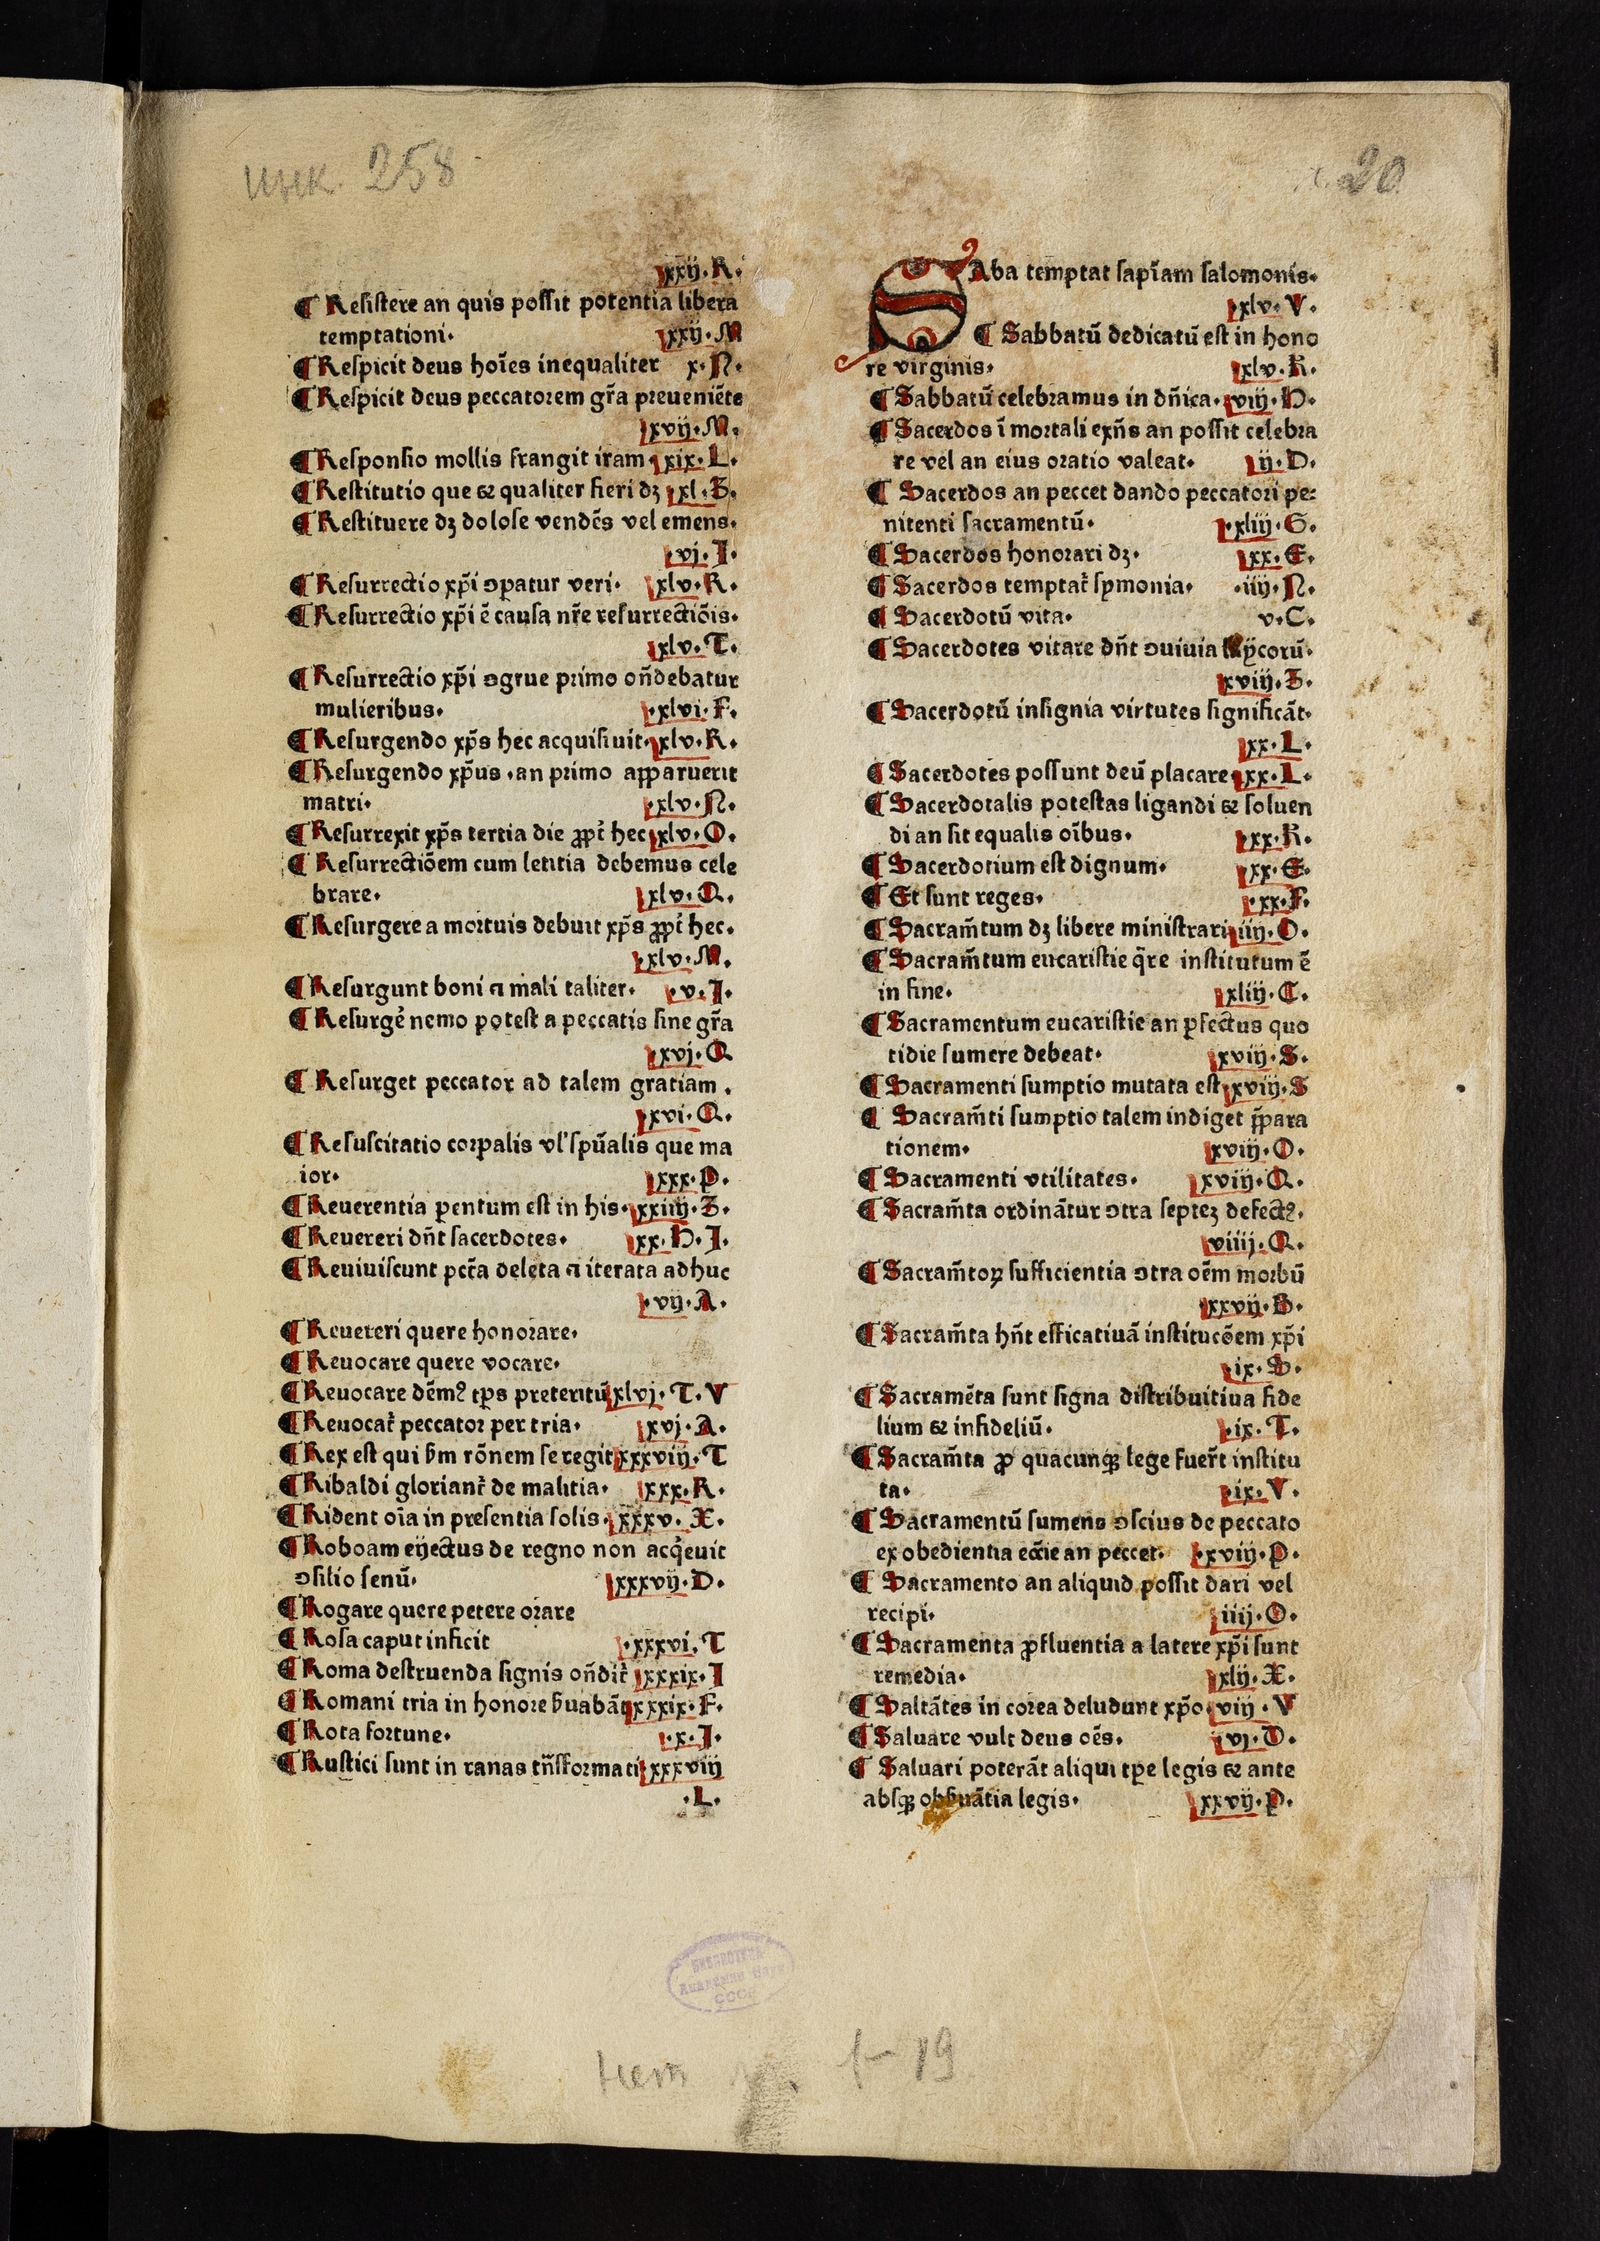 инк. 258
20
xxij.R.
¶ Resistere an quis possit potentia libera
temptationi. xxij.M
¶ Respicit deus hoīes inequaliter x.N.
¶ Respicit deus peccatorem gr̄a preueniēte
xvij.M.
¶ Responsio mollis frangit iram. xix.L.
¶ Restitutio que ⁊ qualiter fieri dꝫ xl.B.
¶ Restituere dꝫ dolose vendēs vel emens.
vj.I.
¶ Resurrectio xp̄i ɔꝑatur veri. xlv.R.
¶ Resurrectio xp̄i ē causa nr̄e resurrectiōis.
xlv.T.
¶ Resurrectio xp̄i ɔgrue primo on̄debatur
mulieribus. xlvi.F.
¶ Resurgendo xp̄s hec acquisiuit. xlv.R.
¶ Resurgendo xp̄us .an primo apparuerit
matri. xlv.N.
¶ Resurrexit xp̄s tertia die ꝓpt̄ hec xlv.O.
¶ Resurrectiōem cum letitia debemus cele
brare. xlv.Q.
¶ Resurgere a mortuis debuit xp̄s ꝓpt̄ hec.
xlv.M.
¶ Resurgunt boni ⁊ mali taliter. v.I.
¶ Resurgē nemo potest a peccatis sine gr̄a
xvj.Q
¶ Resurget peccator ad talem gratiam.
xvi.Q.
¶ Resuscitatio corꝑalis vl' spūalis que ma
ior. xxx.P.
¶ Reuerentia ꝑentum est in his. xxiiij.B.
¶ Reuereri dn̄t sacerdotes. xx.H.I.
¶ Reuiuiscunt pct̄a deleta ⁊ iterata adhuc
vij.A.
¶ Reuereri quere honorare.
¶ Reuocare quere vocare.
¶ Reuocare dēmꝰ tp̄s preteritū xlvj.T.V
¶ Reuocat̄ peccator per tria. xvj.A.
¶ Rex est qui ẜm rōnem se regit xxxviij.T
¶ Ribaldi gloriant̄ de malitia. xxx.R.
¶ Rident oīa in presentia solis. xxxv.X.
¶ Roboam eijectus de regno non acq̄euit
ɔsilio senū. xxxvij.D.
¶ Rogare quere petere orare
¶ Rosa caput inficit xxxvi.T
¶ Roma destruenda signis on̄dit̄ xxxix.I
¶ Romani tria in honore ẜuabāt xxxix.F.
¶ Rota fortune. x.I.
¶ Rustici sunt in ranas trn̄sformati xxxviij
.L.
SAba temptat sapīam salomonis.
xlv.V.
¶ Sabbatū dedicatū est in hono
re virginis. xlv.R.
¶ Sabbatū celebramus in dn̄ica. viij.H.
¶ Sacerdos ī mortali exn̄s an possit celebra
re vel an eius oratio valeat. ij.D.
¶ Sacerdos an peccet dando peccatori pe⸗
nitenti sacramentū. xliij.G.
¶ Sacerdos honorari dꝫ. xx.E.
¶ Sacerdos temptat̄ symonia. .iiij.N.
¶ Sacerdotū vita. v.C.
¶ Sacerdotes vitare dn̄t ɔuiuia laycorū.
xviij.B.
¶ Sacerdotū insignia virtutes significāt.
xx.L.
¶ Sacerdotes possunt deū placare xx.L.
¶ Sacerdotalis potestas ligandi ⁊ soluen
di an sit equalis oībus. xx.R.
¶ Sacerdotium est dignum. xx.E.
¶ Et sunt reges. xx.F.
¶ Sacram̄tum dꝫ libere ministrari iiij.O.
¶ Sacram̄tum eucaristie q̄re institutum ē
in fine. xliij.C.
¶ Sacramentum eucaristie an ꝑfectus quo
tidie sumere debeat. xviij.S.
¶ Sacramenti sumptio mutata est xviij.S
¶ Sacram̄ti sumptio talem indiget p̄para
tionem. xviij.O.
¶ Sacramenti vtilitates. xviij.Q.
¶ Sacram̄ta ordinātur ɔtra septeꝫ defectꝰ.
viiij.Q.
¶ Sacram̄toꝝ sufficientia ɔtra oēm morbū
xxvij.B.
¶ Sacram̄ta hn̄t efficatiuā institucōem xp̄i
ix.S.
¶ Sacramēta sunt signa distribuitiua fide
lium ⁊ infideliū. ix.T.
¶ Sacram̄ta ꝓ quacunqꝫ lege fuer̄t institu
ta. ix.V.
¶ Sacramentū sumens ɔscius de peccato
ex obedientia ecc̄ie an peccet. xviij.P.
¶ Sacramento an aliquid possit dari vel
recipi. iiij.O.
¶ Sacramenta ꝓfluentia a latere xp̄i sunt
remedia. xlij.X.
¶ Saltātes in corea deludunt xp̄o. viij.V
¶ Saluare vult deus oēs. vj.O.
¶ Saluari poterāt aliqui tꝑe legis ⁊ ante
absqꝫ obẜuātia legis. xxvij.P.
БИБЛИОТЕКА
Академии Наук
СССР
нет
1–19